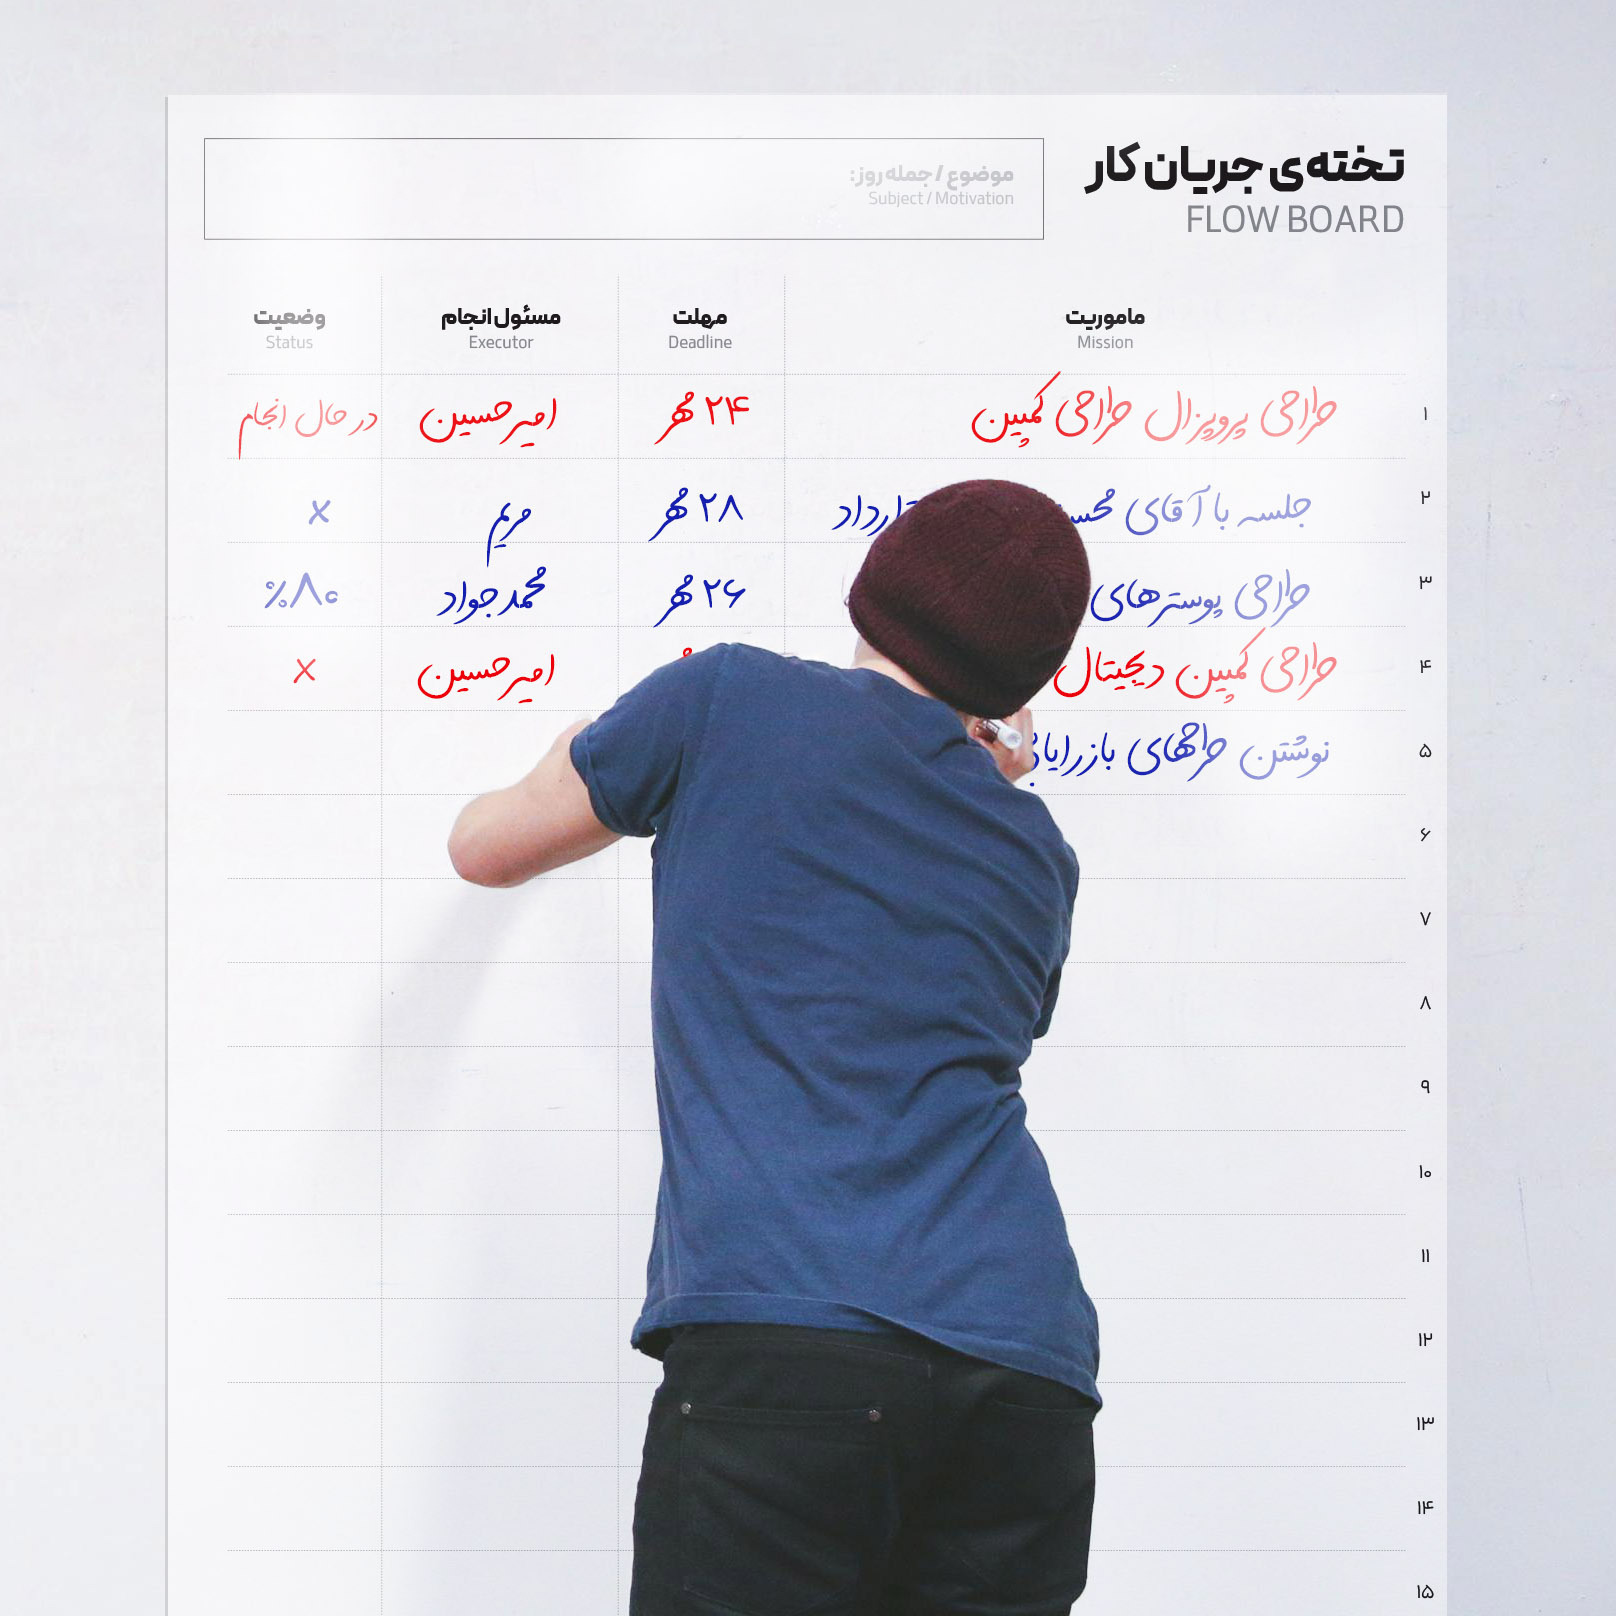 تخته‌ی جریان کار
FLOW BOARD
موضوع / جمله روز:
Subject / Motivation
ماموریت مهلت مسئول انجام وضعیت
Mission Deadline Executor Status
۱ طراحی پروپزال طراحی کمپین ۲۴ مهر امیرحسین در حال انجام
۲ جلسه با آقای ۲۸ مهر مریم x
۳ طراحی پوسترهای ۲۶ مهر محمدجواد ۸۰%
۴ طراحی کمپین دیجیتال امیرحسین x
۵ نوشتن طرحهای بازاریابی
۶
۷
۸
۹
۱۰
۱۱
۱۲
۱۳
۱۴
۱۵